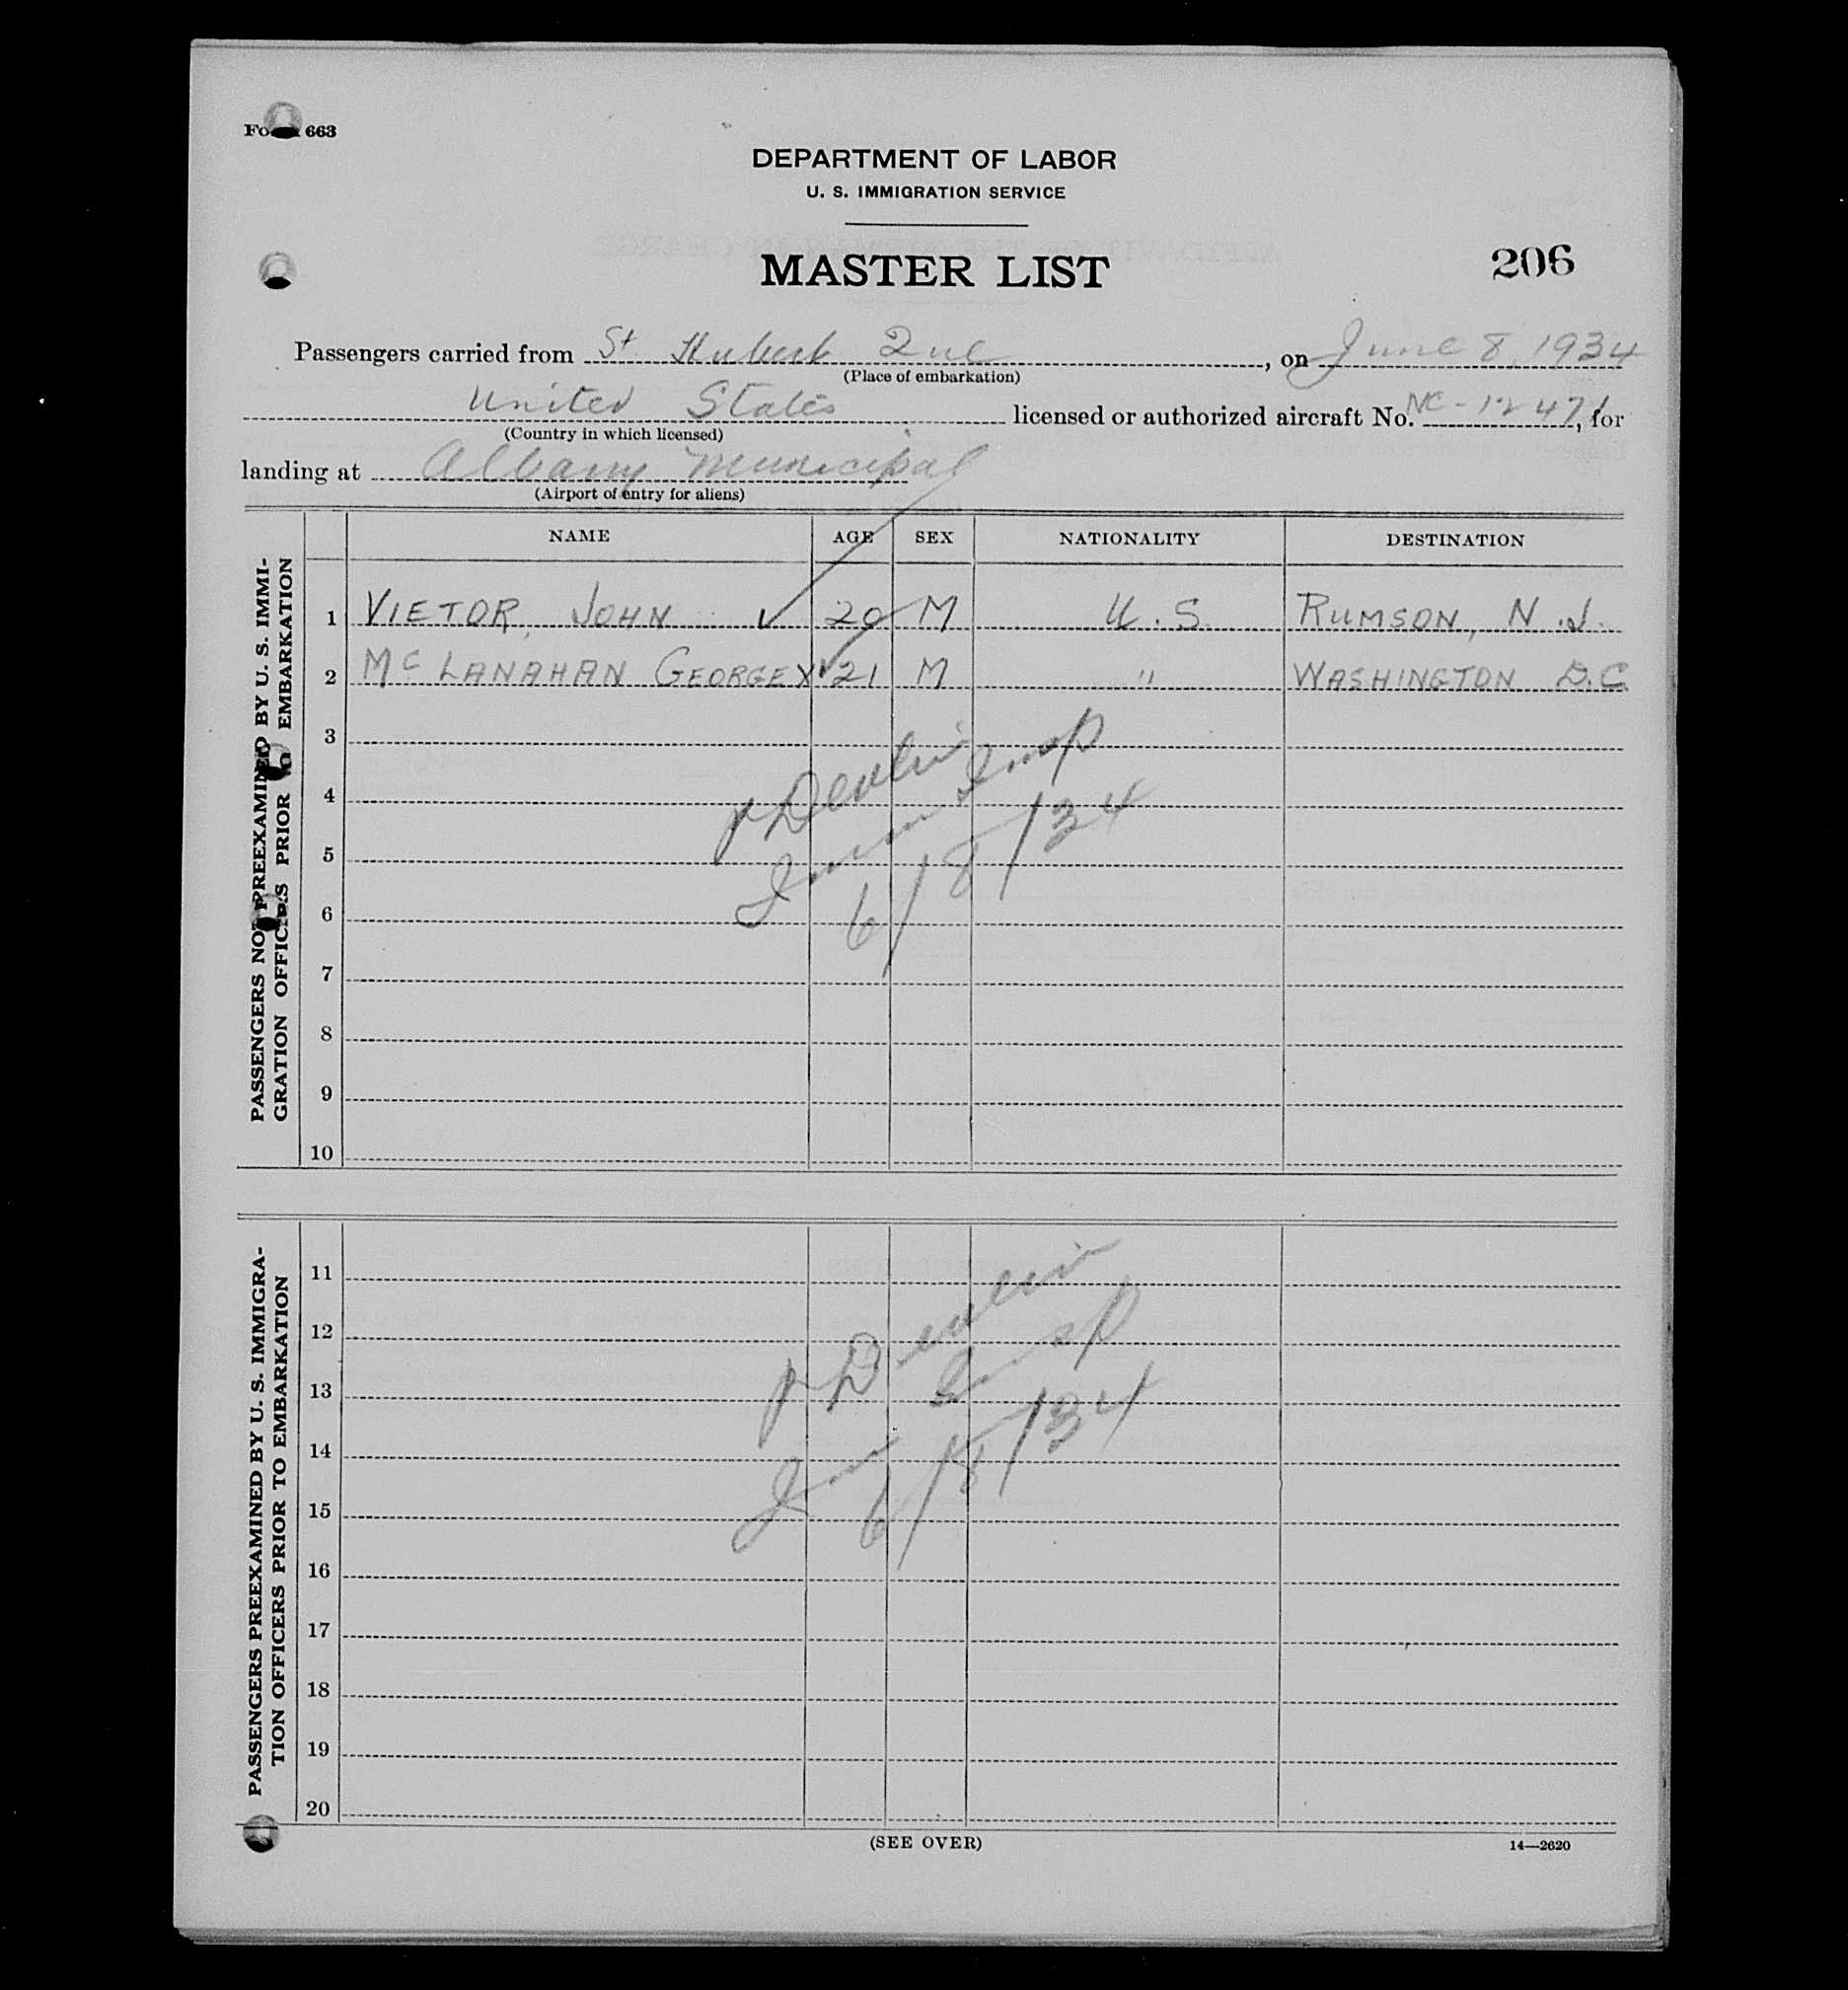 Form 663
DEPARTMENT OF LABOR
U. S. IMMIGRATION SERVICE
MASTER LIST
206
Passengers carried from St Hubert Que, on June 8, 1934
(Place of embarkation)
United States licensed or authorized aircraft No. NC-12471, for
(Country in which licensed)
landing at Albany Municipal
(Airport of entry for aliens)
NAME AGE SEX NATIONALITY DESTINATION
PASSENGERS NOT PREEXAMINED BY U. S. IMMI-
GRATION OFFICERS PRIOR TO EMBARKATION
1 VIETOR, JOHN ✓ 20 M U.S. RUMSON, N.J.
2 McLANAHAN GEORGE X ✓ 21 M " WASHINGTON D.C.
3
4
5
6
7
8
9
10
P Devlin
Imm Insp
6/8/34
PASSENGERS PREEXAMINED BY U. S. IMMIGRA-
TION OFFICERS PRIOR TO EMBARKATION
11
12
13
14
15
16
17
18
19
20
P Devlin
Imm Insp
6/8/34
(SEE OVER)
14—2620